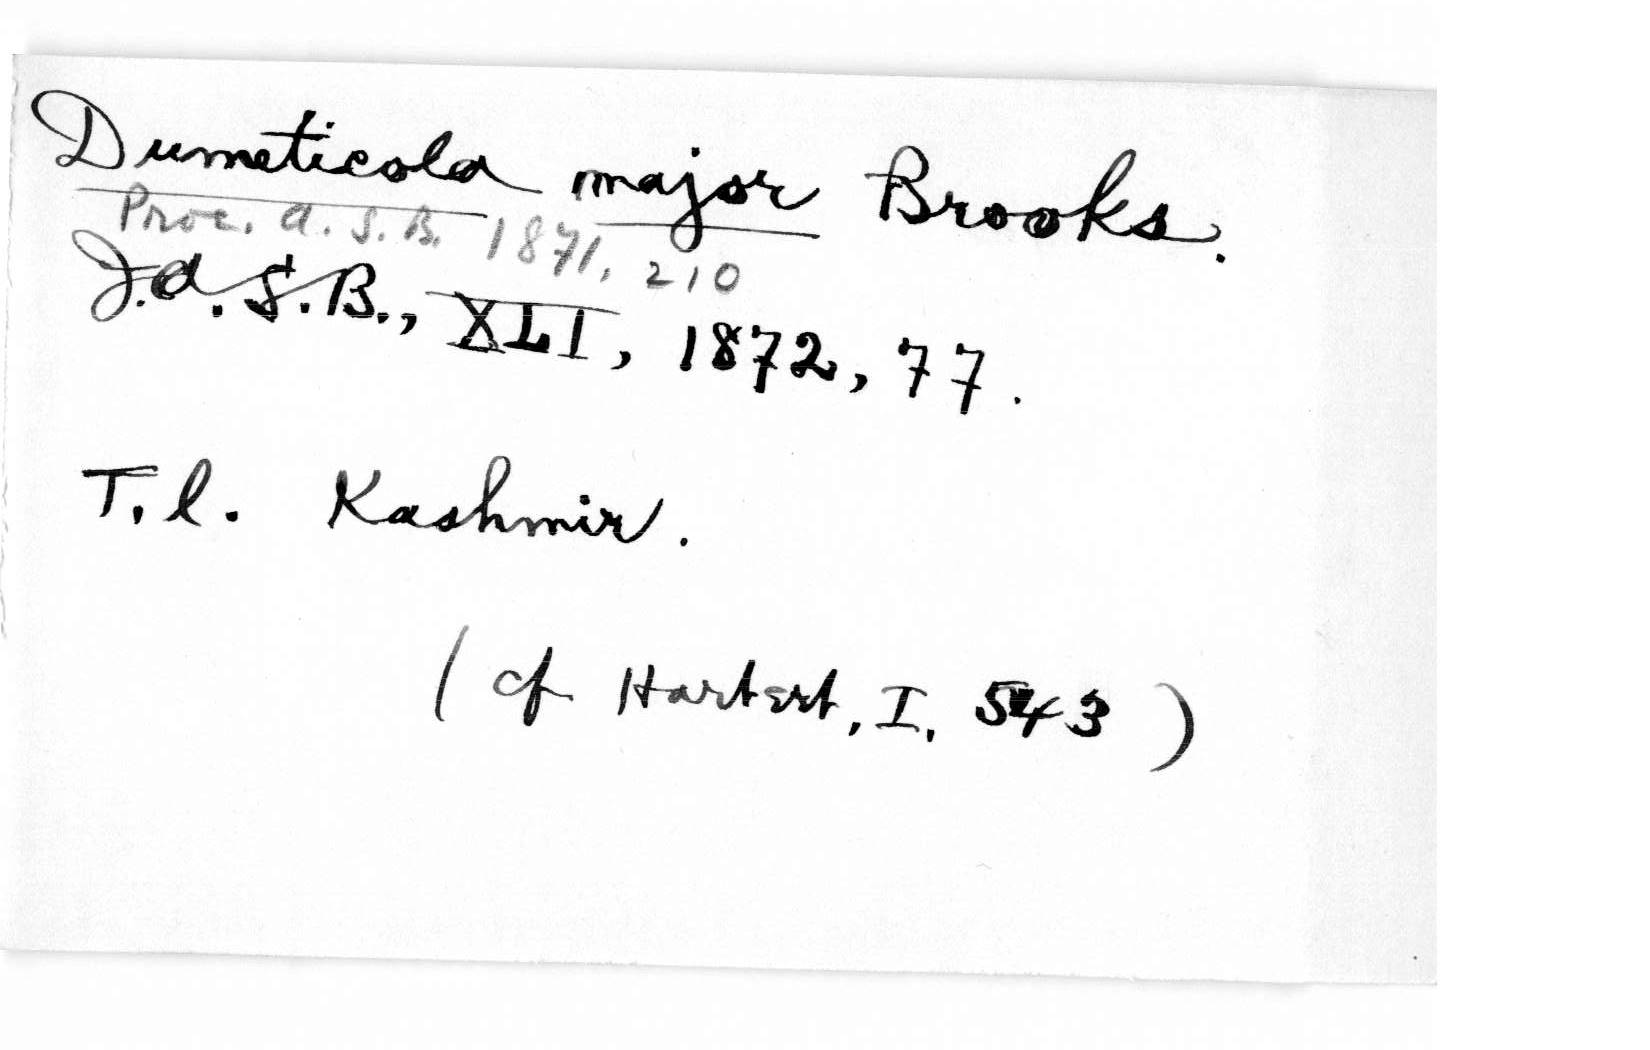 Dumeticola major Brooks.
Proc. A.S.B. 1871, 210
J.A.S.B., XLI, 1872, 77.
T.l. Kashmir.
(cf Hartert, I, 543)